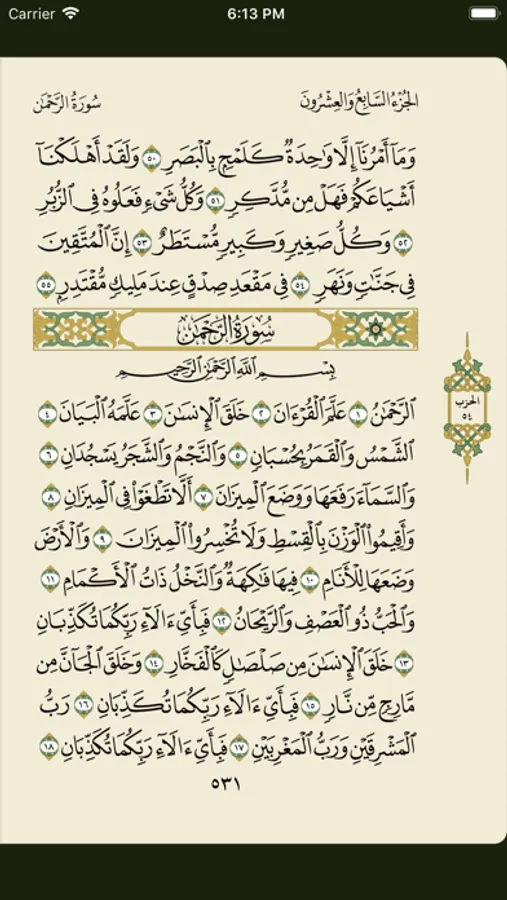 Carrier 6:13 PM
الجُزْءُ السَّابِعُ وَالعِشْرُونَ سُورَةُ الرَّحْمَٰن
وَمَآ أَمْرُنَآ إِلَّا وَٰحِدَةٌ كَلَمْحٍۭ بِٱلْبَصَرِ ٥٠ وَلَقَدْ أَهْلَكْنَآ
أَشْيَاعَكُمْ فَهَلْ مِن مُّدَّكِرٍ ٥١ وَكُلُّ شَىْءٍ فَعَلُوهُ فِى ٱلزُّبُرِ
٥٢ وَكُلُّ صَغِيرٍ وَكَبِيرٍ مُّسْتَطَرٌ ٥٣ إِنَّ ٱلْمُتَّقِينَ
فِى جَنَّٰتٍ وَنَهَرٍ ٥٤ فِى مَقْعَدِ صِدْقٍ عِندَ مَلِيكٍ مُّقْتَدِرٍۭ ٥٥
سُورَةُ الرَّحْمَٰن
بِسْمِ ٱللَّهِ ٱلرَّحْمَٰنِ ٱلرَّحِيمِ
ٱلرَّحْمَٰنُ ١ عَلَّمَ ٱلْقُرْءَانَ ٢ خَلَقَ ٱلْإِنسَٰنَ ٣ عَلَّمَهُ ٱلْبَيَانَ ٤
ٱلشَّمْسُ وَٱلْقَمَرُ بِحُسْبَانٍ ٥ وَٱلنَّجْمُ وَٱلشَّجَرُ يَسْجُدَانِ ٦
وَٱلسَّمَآءَ رَفَعَهَا وَوَضَعَ ٱلْمِيزَانَ ٧ أَلَّا تَطْغَوْا۟ فِى ٱلْمِيزَانِ ٨
وَأَقِيمُوا۟ ٱلْوَزْنَ بِٱلْقِسْطِ وَلَا تُخْسِرُوا۟ ٱلْمِيزَانَ ٩ وَٱلْأَرْضَ
وَضَعَهَا لِلْأَنَامِ ١٠ فِيهَا فَٰكِهَةٌ وَٱلنَّخْلُ ذَاتُ ٱلْأَكْمَامِ ١١
وَٱلْحَبُّ ذُو ٱلْعَصْفِ وَٱلرَّيْحَانُ ١٢ فَبِأَىِّ ءَالَآءِ رَبِّكُمَا تُكَذِّبَانِ
١٣ خَلَقَ ٱلْإِنسَٰنَ مِن صَلْصَٰلٍ كَٱلْفَخَّارِ ١٤ وَخَلَقَ ٱلْجَآنَّ مِن
مَّارِجٍ مِّن نَّارٍ ١٥ فَبِأَىِّ ءَالَآءِ رَبِّكُمَا تُكَذِّبَانِ ١٦ رَبُّ
ٱلْمَشْرِقَيْنِ وَرَبُّ ٱلْمَغْرِبَيْنِ ١٧ فَبِأَىِّ ءَالَآءِ رَبِّكُمَا تُكَذِّبَانِ ١٨
الحزب
٥٤
٥٣١